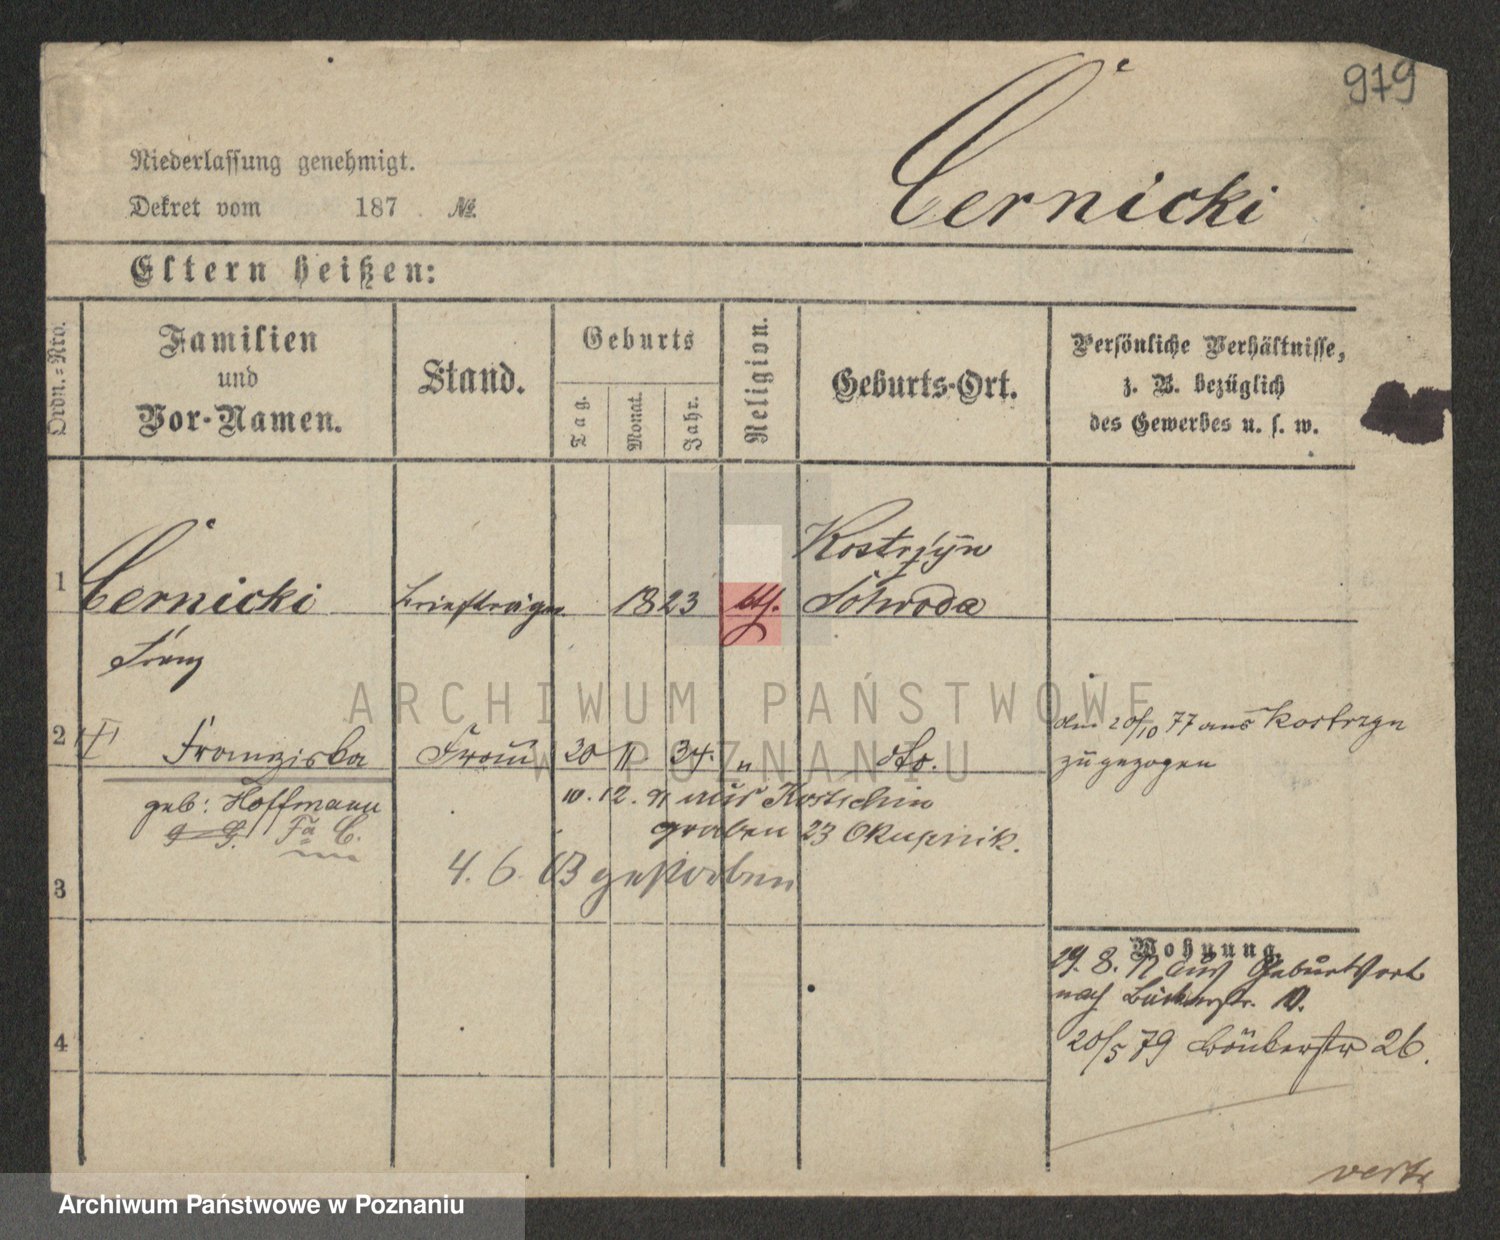 979
Cernicki
Niederlassung genehmigt.
Dekret vom 187 . №
Eltern heißen:
Ordn.=Nro.
Familien
und
Vor-Namen.
Stand.
Geburts
Tag.
Monat.
Jahr.
Religion.
Geburts-Ort.
Persönliche Verhältnisse,
z. B. bezüglich
des Gewerbes u. s. w.
Kostrzyn
1 Cernicki Briefträger 1823 kth. Schroda
Franz
2 Franziska Frau 30 11 34. " dto.
den 20/10 77 aus Kostrzyn
zugezogen
geb: Hoffmann
10. 12. 91 aus Kostschin
graben 23 Okupnik.
3
4. 6. 03 gestorben
Wohnung.
29. 8. 77 aus Geburtsort
nach Bäckerstr. 10.
4
20/5 79 Bäckerstr 26.
verte
ARCHIWUM PAŃSTWOWE
W POZNANIU
Archiwum Państwowe w Poznaniu